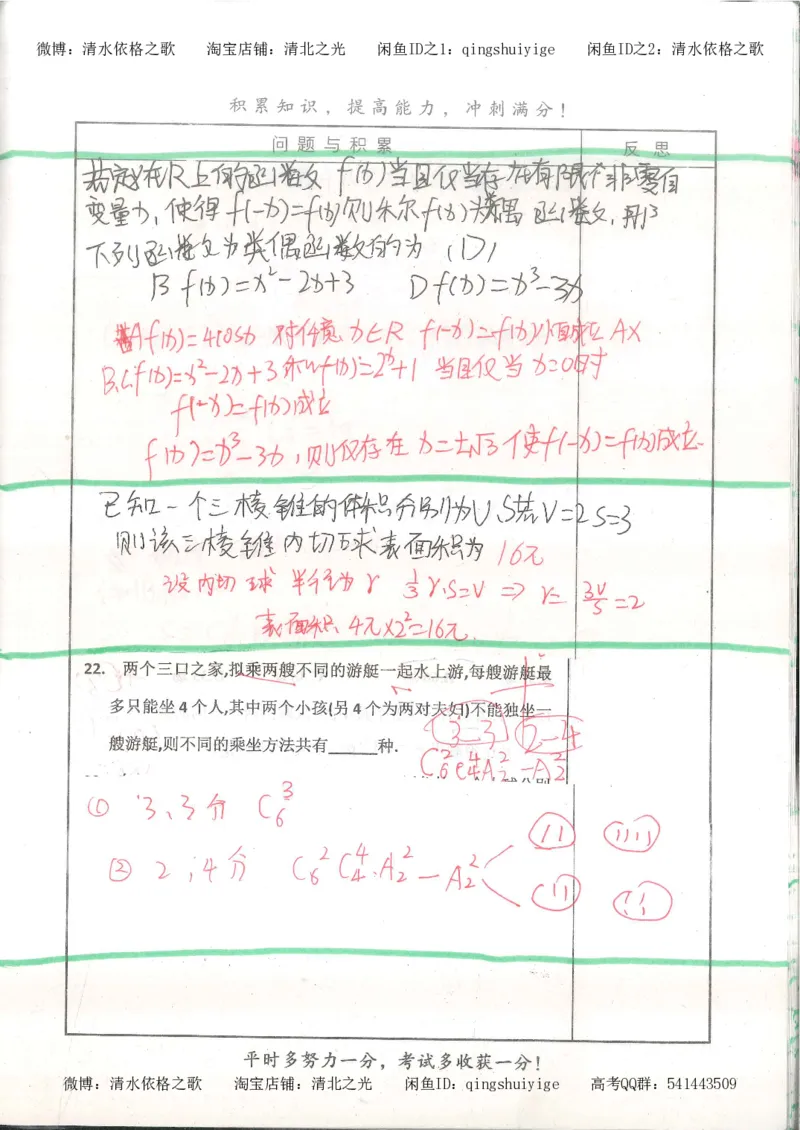 微博：清水依格之歌 淘宝店铺：清北之光 闲鱼ID之1：qingshuiyige 闲鱼ID之2：清水依格之歌
积累知识，提高能力，冲刺满分！
问题与积累 反思
若定义在R上的函数 f(x)当且仅当存在有限个非零自
变量x，使得 f(-x)=f(x)则称f(x)为类偶函数，则
下列函数为类偶函数的为 (D)
B f(x)=x²-2x+3 D f(x)=x³-3x
A f(x)=4cosx 对任意 x∈R f(-x)=f(x)恒成立 A×
B、C f(x)=x²-2x+3和f(x)=2ˣ+1 当且仅当 x=0时
f(-x)=f(x)成立
f(x)=x³-3x，则仅存在 x=±√3 使f(-x)=f(x)成立.
已知一个三棱锥的体积分别为V、S若V=2 S=3
则该三棱锥内切球表面积为 16π
设内切球 半径为 r 1/3 r·S=V ⇒ r= 3V/S =2
表面积 4π×2²=16π.
22. 两个三口之家,拟乘两艘不同的游艇一起水上游,每艘游艇最
多只能坐4个人,其中两个小孩(另4个为两对夫妇)不能独坐一
艘游艇,则不同的乘坐方法共有______种.
3-3 2-4
C₆²C₄⁴A₂²-A₂²
① 3、3分 C₆³
② 2，4分 C₆²C₄⁴·A₂²-A₂²
平时多努力一分，考试多收获一分！
微博：清水依格之歌 淘宝店铺：清北之光 闲鱼ID：qingshuiyige 高考QQ群：541443509